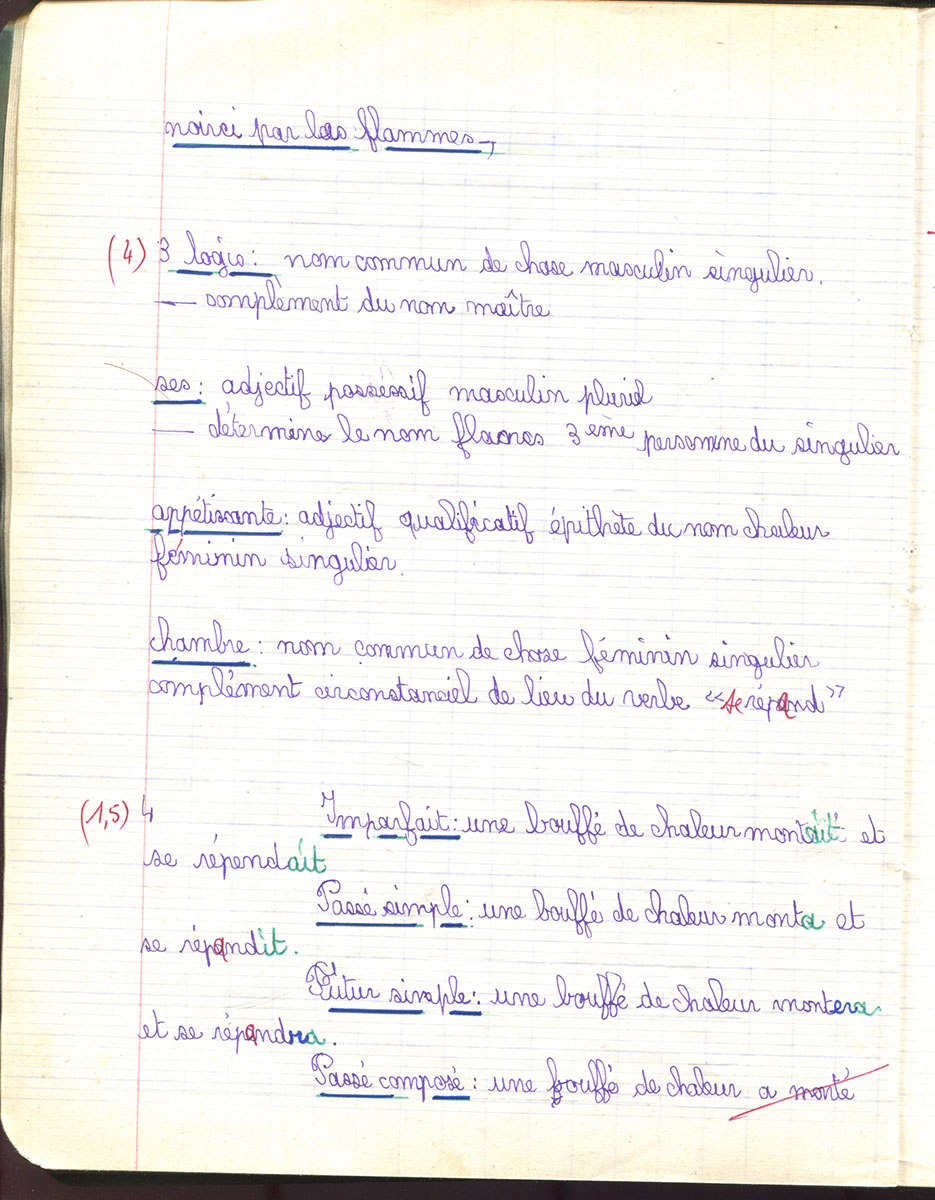 noirci par les flammes,
(4) 3 logis : nom commun de chose masculin singulier.
— complèment du nom maître
ses : adjectif possessif masculin pluriel
— détermine le nom flancs 3ème personne du singulier
appétissante : adjectif qualificatif épithète du nom chaleur
féminin singulier
chambre : nom commun de chose féminin singulier
complément circonstanciel de lieu du verbe "se répand"
(1,5) 4 Imparfait : une bouffé de chaleur montait et
se répendait
Passé simple : une bouffé de chaleur monta et
se répandit.
Futur simple : une bouffé de chaleur montera
et se répandra.
Passé composé : une bouffé de chaleur a monté